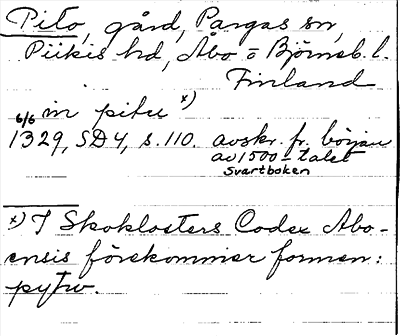 Pito, gård, Pargas sn,
Piikis hd, Åbo o Björneb. l.
Finland
in pitu x)
6/6 1329, SD 4, s. 110. avskr. fr. början
av 1500-talet
Svartboken
x) I Skoklosters Codex Abo-
ensis förekommer formen:
pytw.